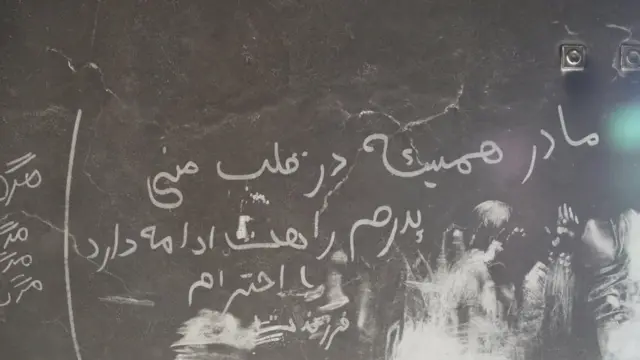 مادر همیشه در قلب منی
پدرم راهت ادامه دارد
با احترام
فرزندت
مرگ
مرگ
مرگ
مرگ